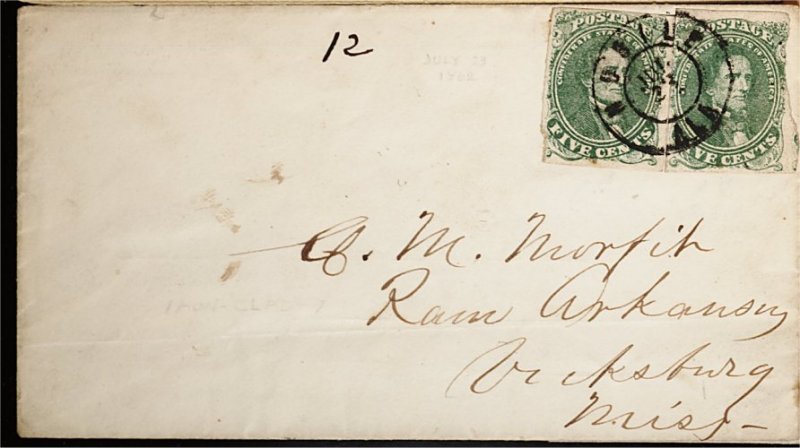 12
JULY 23
1862
POSTAGE
CONFEDERATE STATES OF AMERICA
FIVE CENTS
POSTAGE
STATES OF AMERICA
FIVE CENTS
MOBILE
ALA
M. Morfit
Ram Arkansas
Vicksburg
Miss
IRON-CLAD